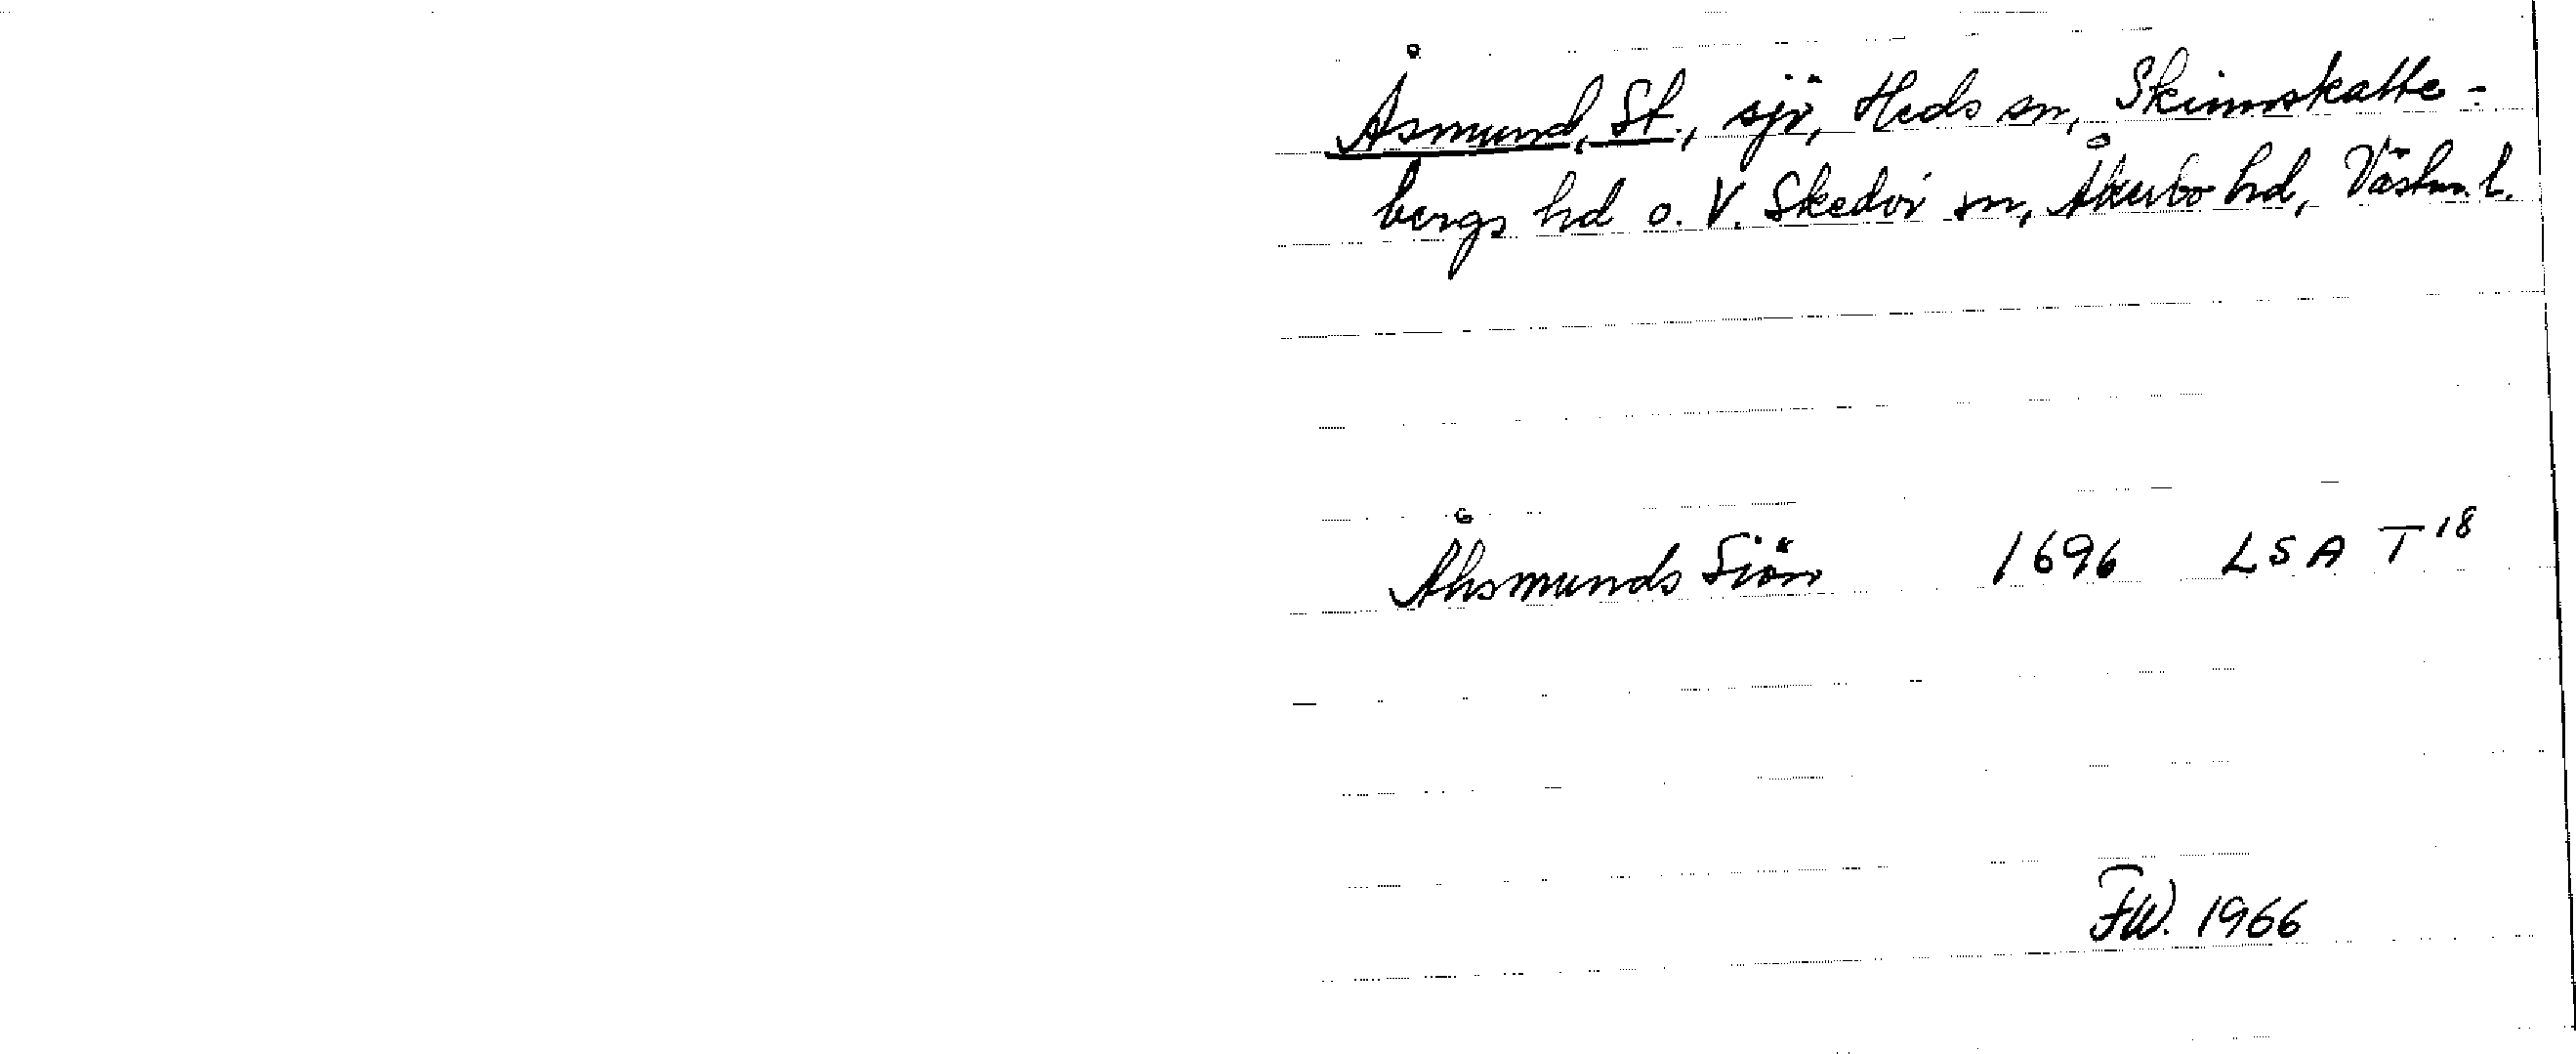 Åsmund, St., sjö, Heds sn, Skinnskatte-
bergs hd o. V. Skedvi sn, Åkerbo hd, Västm. l.
Åhsmunds Siön 1696 LSA T 18
FW. 1966